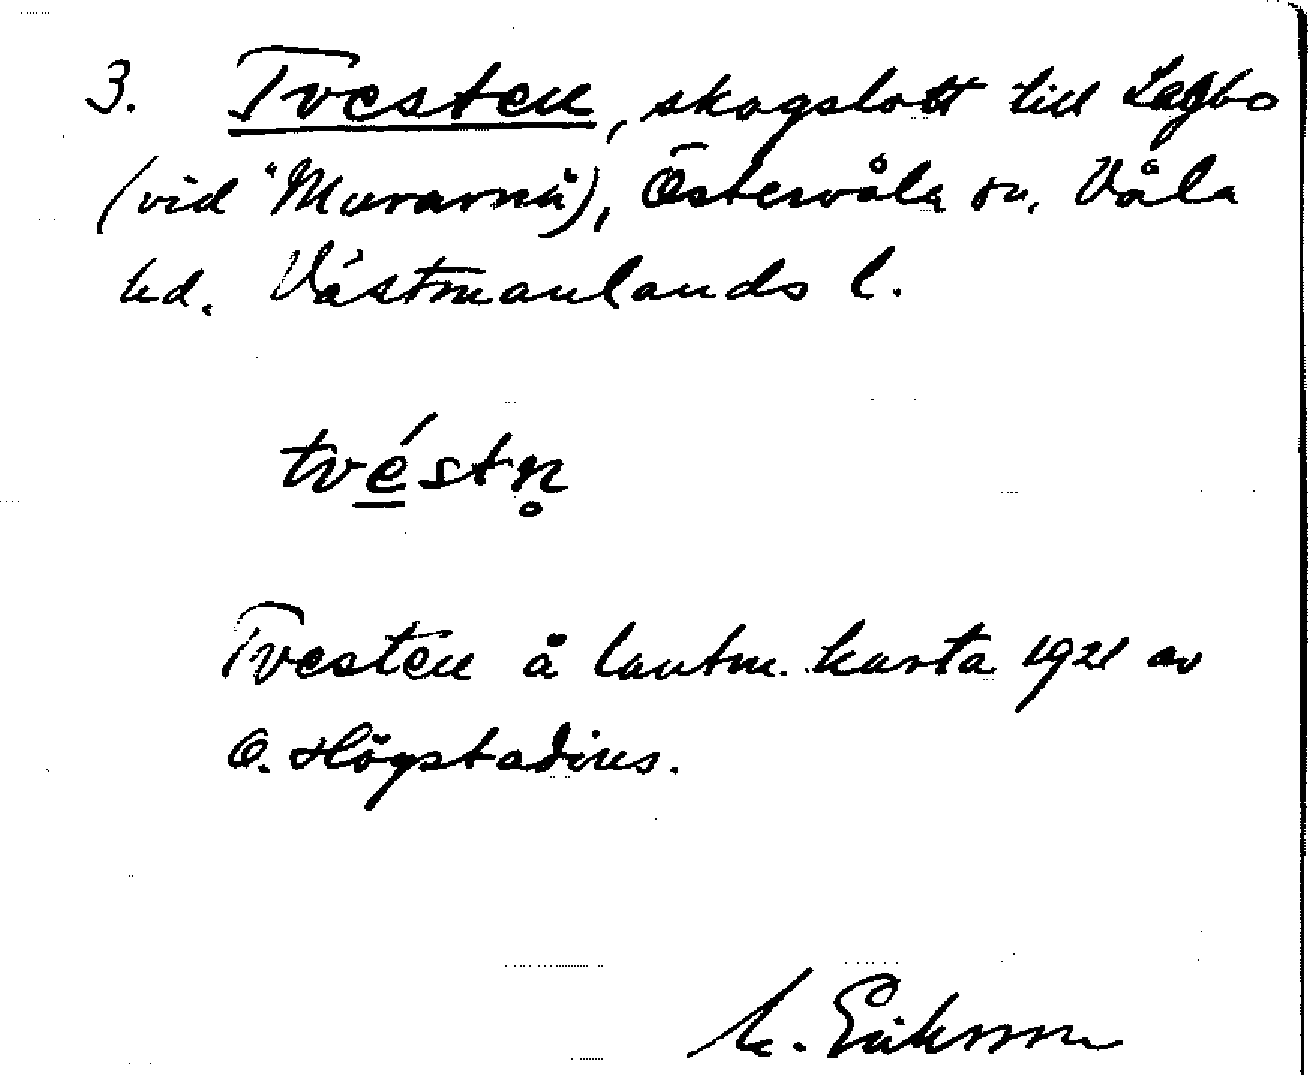 3. Tvesten, skogslott till Lagbo
(vid "Murarna"), Östervåla sn, Våla
hd. Västmanlands l.
tvéstn̥
Tvesten å lantm. karta 1921 av
O. Högstadius.
M. Eriksson